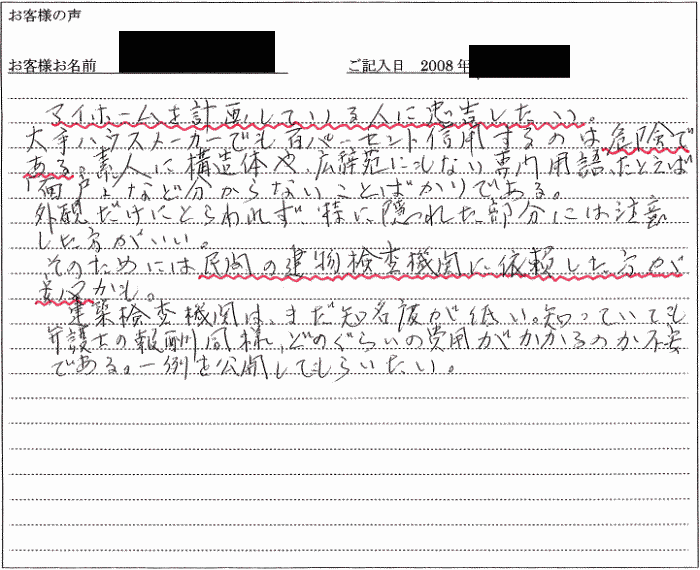 お客様の声
お客様お名前
ご記入日 2008年
マイホームを計画している人に忠告したい。
大手ハウスメーカーでも百パーセント信用するのは危険で
ある。素人に構造体や広辞苑にもない専門用語、たとえば
など分からないことばかりである。
外観だけにとらわれず特に隠れた部分には注意
した方がいい。
そのためには民間の建物検査機関に依頼した方が
かも。
建築検査機関は、まだ知名度が低い。知っていても
弁護士の報酬同様、どのぐらいの費用がかかるのか不安
である。一例を公開してもらいたい。